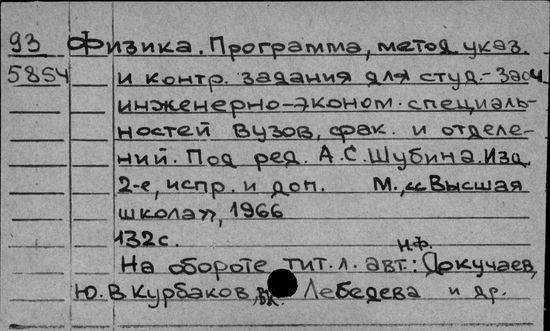 93 Физика. Программа, метод указ.
5854 и контр. задания для студ.-заоч
инженерно-эконом. специаль-
ностей вузов, фак. и отделе-
ний. Под ред. А.С.Шубина. Изд.
2-е, испр. и доп. М., «Высшая
школа», 1966
132с.
Н.Ф.
На обороте тит. л. авт.: Докучаев,
Ю.В Курбаков, Лебедева и др.